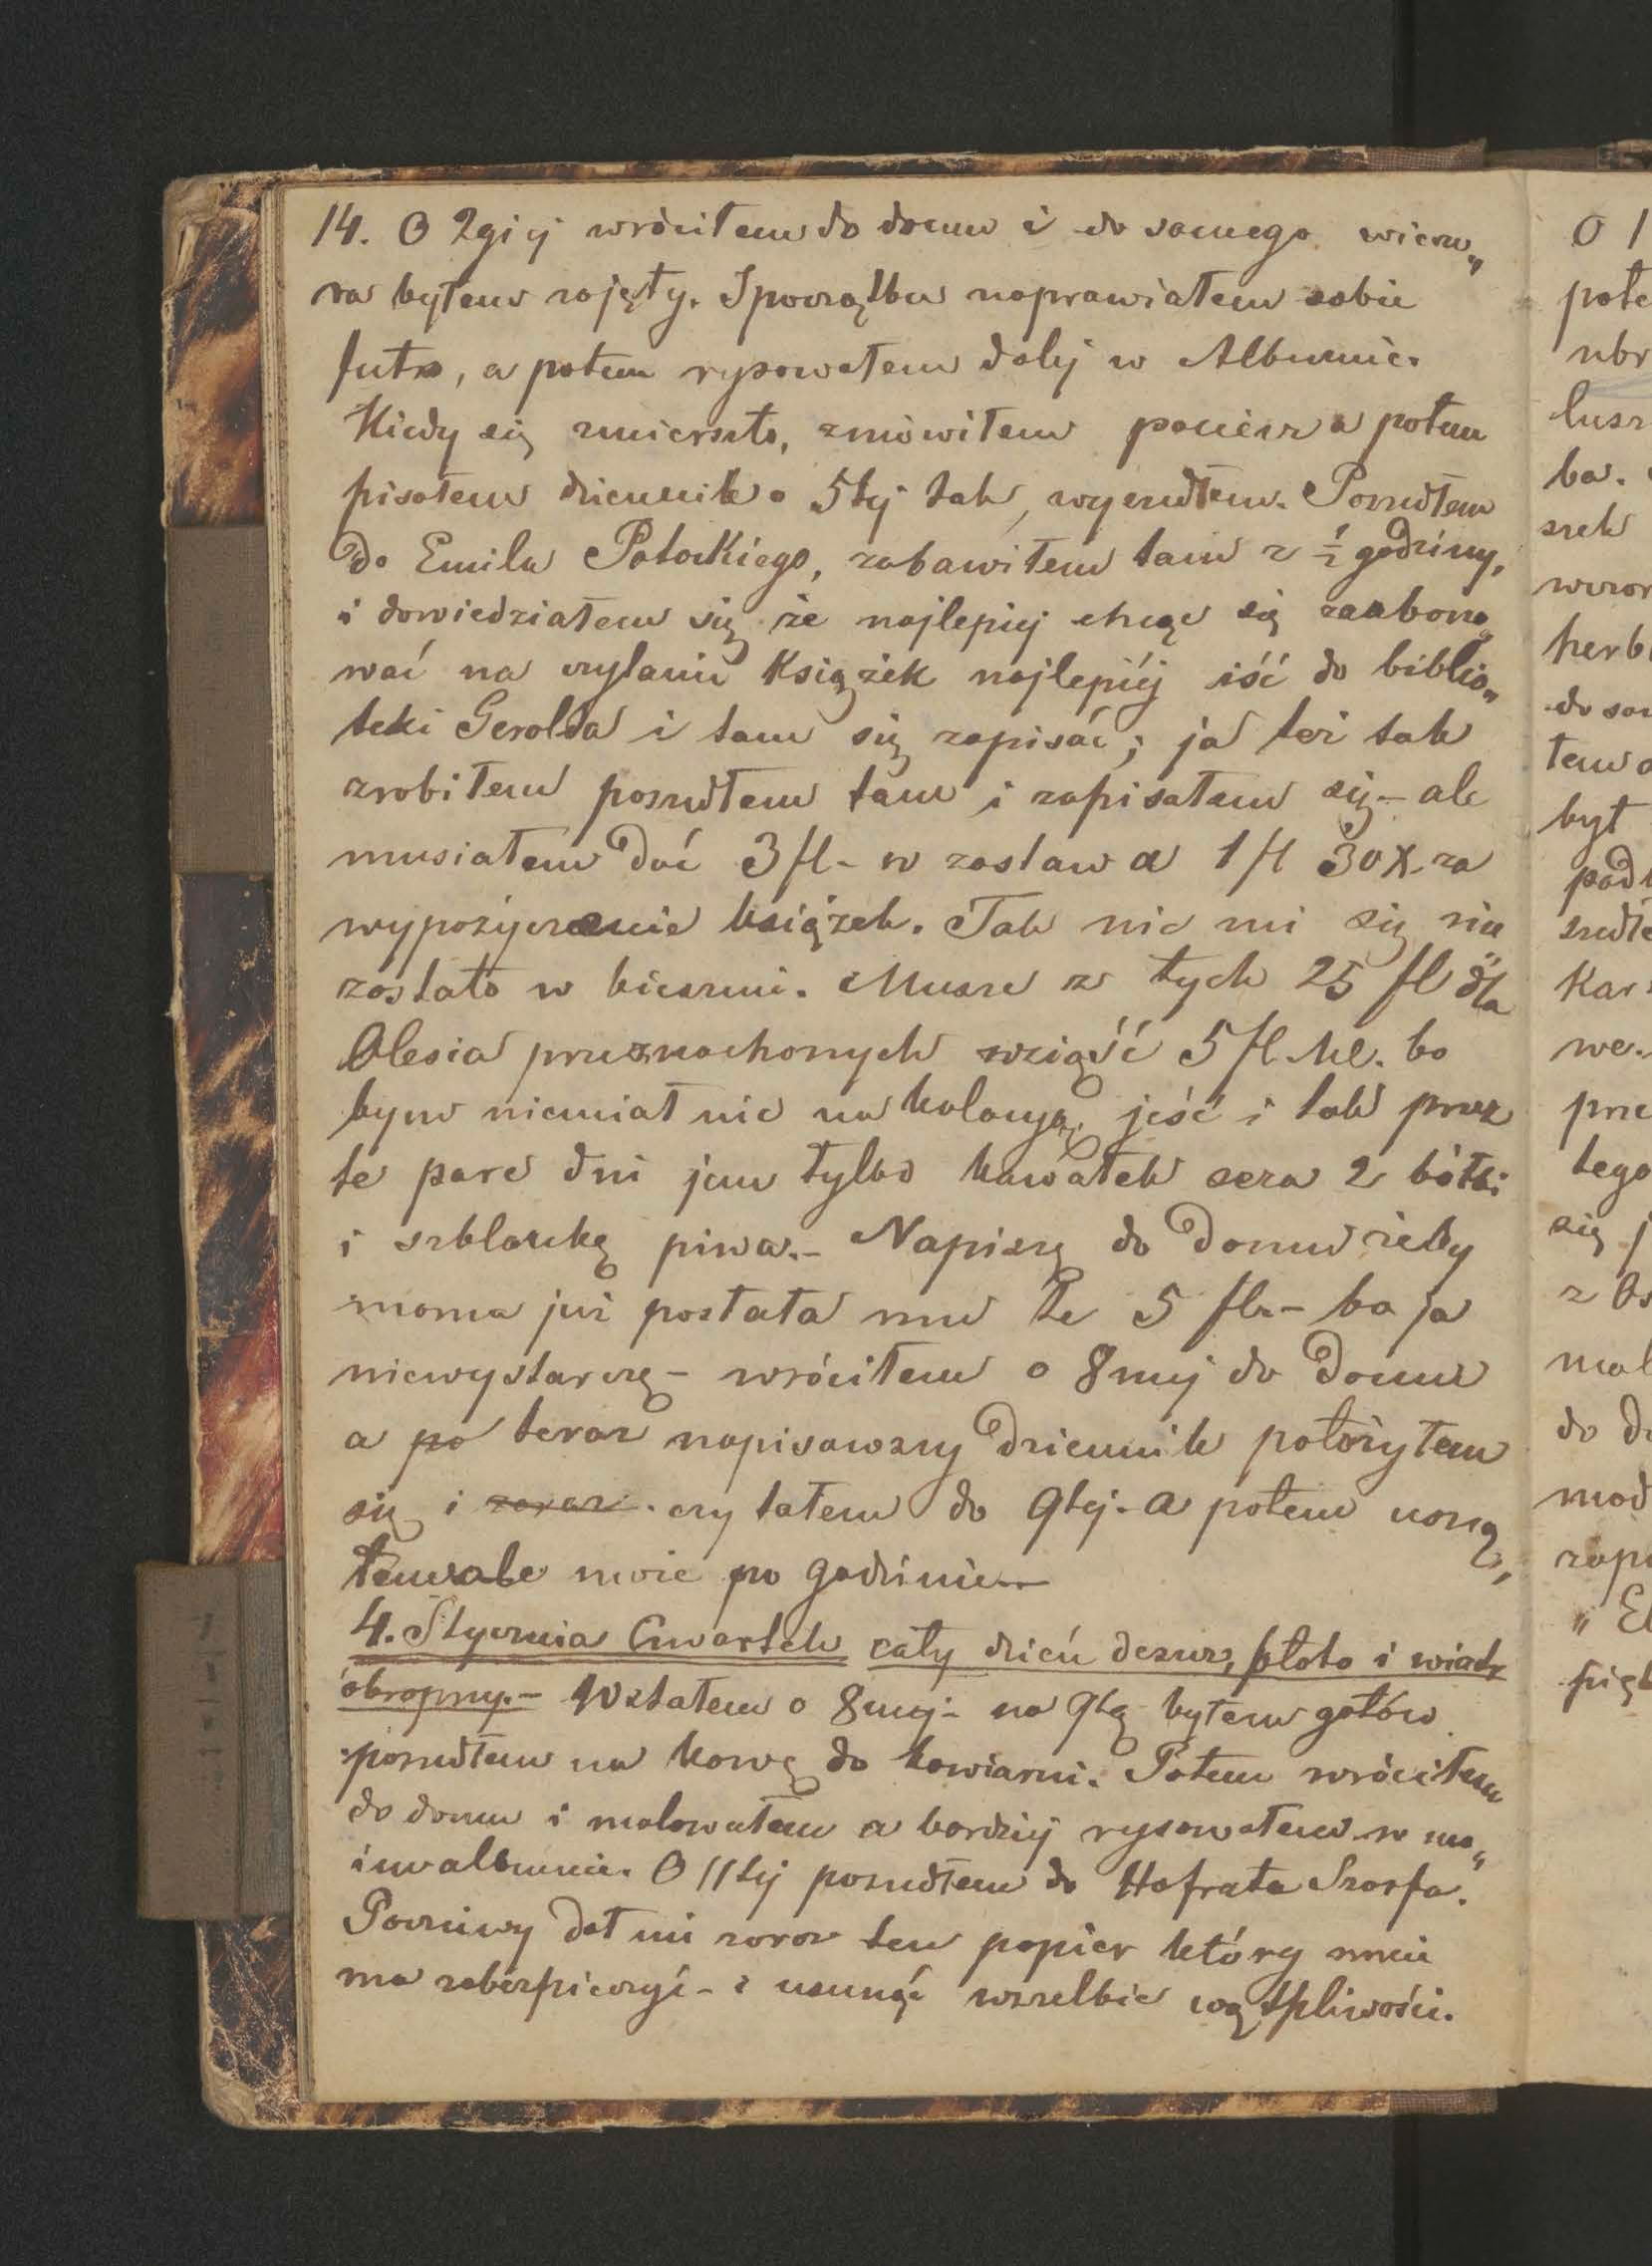 14. O 2giej wróciłem do domu i do samego wieczo„
ra byłem zajęty. Spoczątku naprawiałem sobie
futro, a potem rysowałem dalej w Albumie.
Kiedy się zmierzchło, zmówiłem pacierz a potem
pisałem dziennik o 5tej tak, wyszedłem. Poszedłem
do Emila Potockiego, zabawiłem tam z ½ godziny,
i dowiedziałem się że najlepiej chcąc się zaabono„
wać na czytanie Książek najlepiéj iść do biblio„
teki Gerolda i tam się zapisać; ja też tak
zrobiłem poszedłem tam i zapisałem się - ale
musiałem dać 3 fl - w zastaw a 1 fl 30 x. za
wypożyczanie książek. Tak nic mi się nie
zostało w kieszeni. Muszę z tych 25 fl dla
Olesia przeznachonych wziąść 5 fl. bo
bym niemiał nic na kolacyą jeść i tak przez
te parę dni jem tylko kawałek sera 2 bółki
i szklankę piwa. - Napiszę do domu żeby
mama już posłała mu te 5 fl. - bo ja
niewystarczę - wróciłem o 8mej do domu
a po teraz napisawszy dziennik położyłem
się i zaraz czytałem do 9tej - a potem usną„
łem ale może po godzinie —
4. Stycznia Czwartek cały dzień deszcz, błoto i wiatr
okropny. - Wstałem o 8mej - na 9tą byłem gotów
poszedłem na kawę do kawiarni. Potem wróciłem
do domu i malowałem a bardziej rysowałem w mo„
im albumie. O 11tej poszedłem do Hofrata Szarfa.
Poczciwy dał mi zaraz ten papier który mnie
ma zabezpieczyć - i usunąć wszelkie wątpliwości.